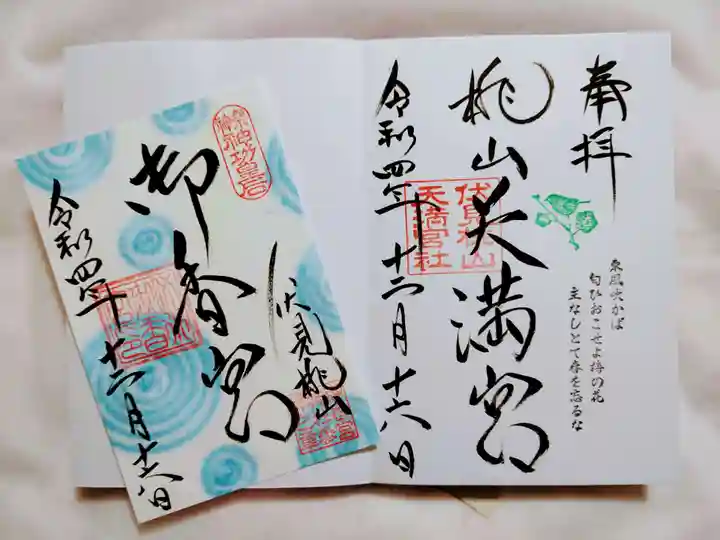 奉拝
桃山天満宮
伏見桃山
天満宮社
令和四年十二月十六日
東風吹かば
匂ひおこせよ梅の花
主なしとて春を忘るな
神功皇后
伏見桃山
御香宮
令和四年十二月十六日